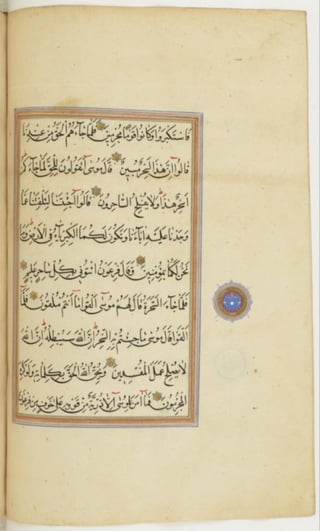 فاستكبروا وكانوا قوما مجرمين فلما جاءهم الحق من عندنا
قالوا ان هذا لسحر مبين قال موسى اتقولون للحق لما جاءكم
اسحر هذا ولا يفلح الساحرون قالوا اجئتنا لتلفتنا عما
وجدنا عليه اباءنا وتكون لكما الكبرياء في الارض وما
نحن لكما بمؤمنين وقال فرعون ائتوني بكل ساحر عليم
فلما جاء السحرة قال لهم موسى القوا ما انتم ملقون فلما
القوا قال موسى ما جئتم به السحر ان الله سيبطله ان الله
لا يصلح عمل المفسدين ويحق الله الحق بكلماته ولو كره
المجرمون فما امن لموسى الا ذرية من قومه على خوف من فرعون